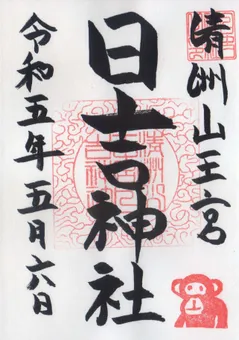 清洲山王宮
日吉神社
令和五年五月六日